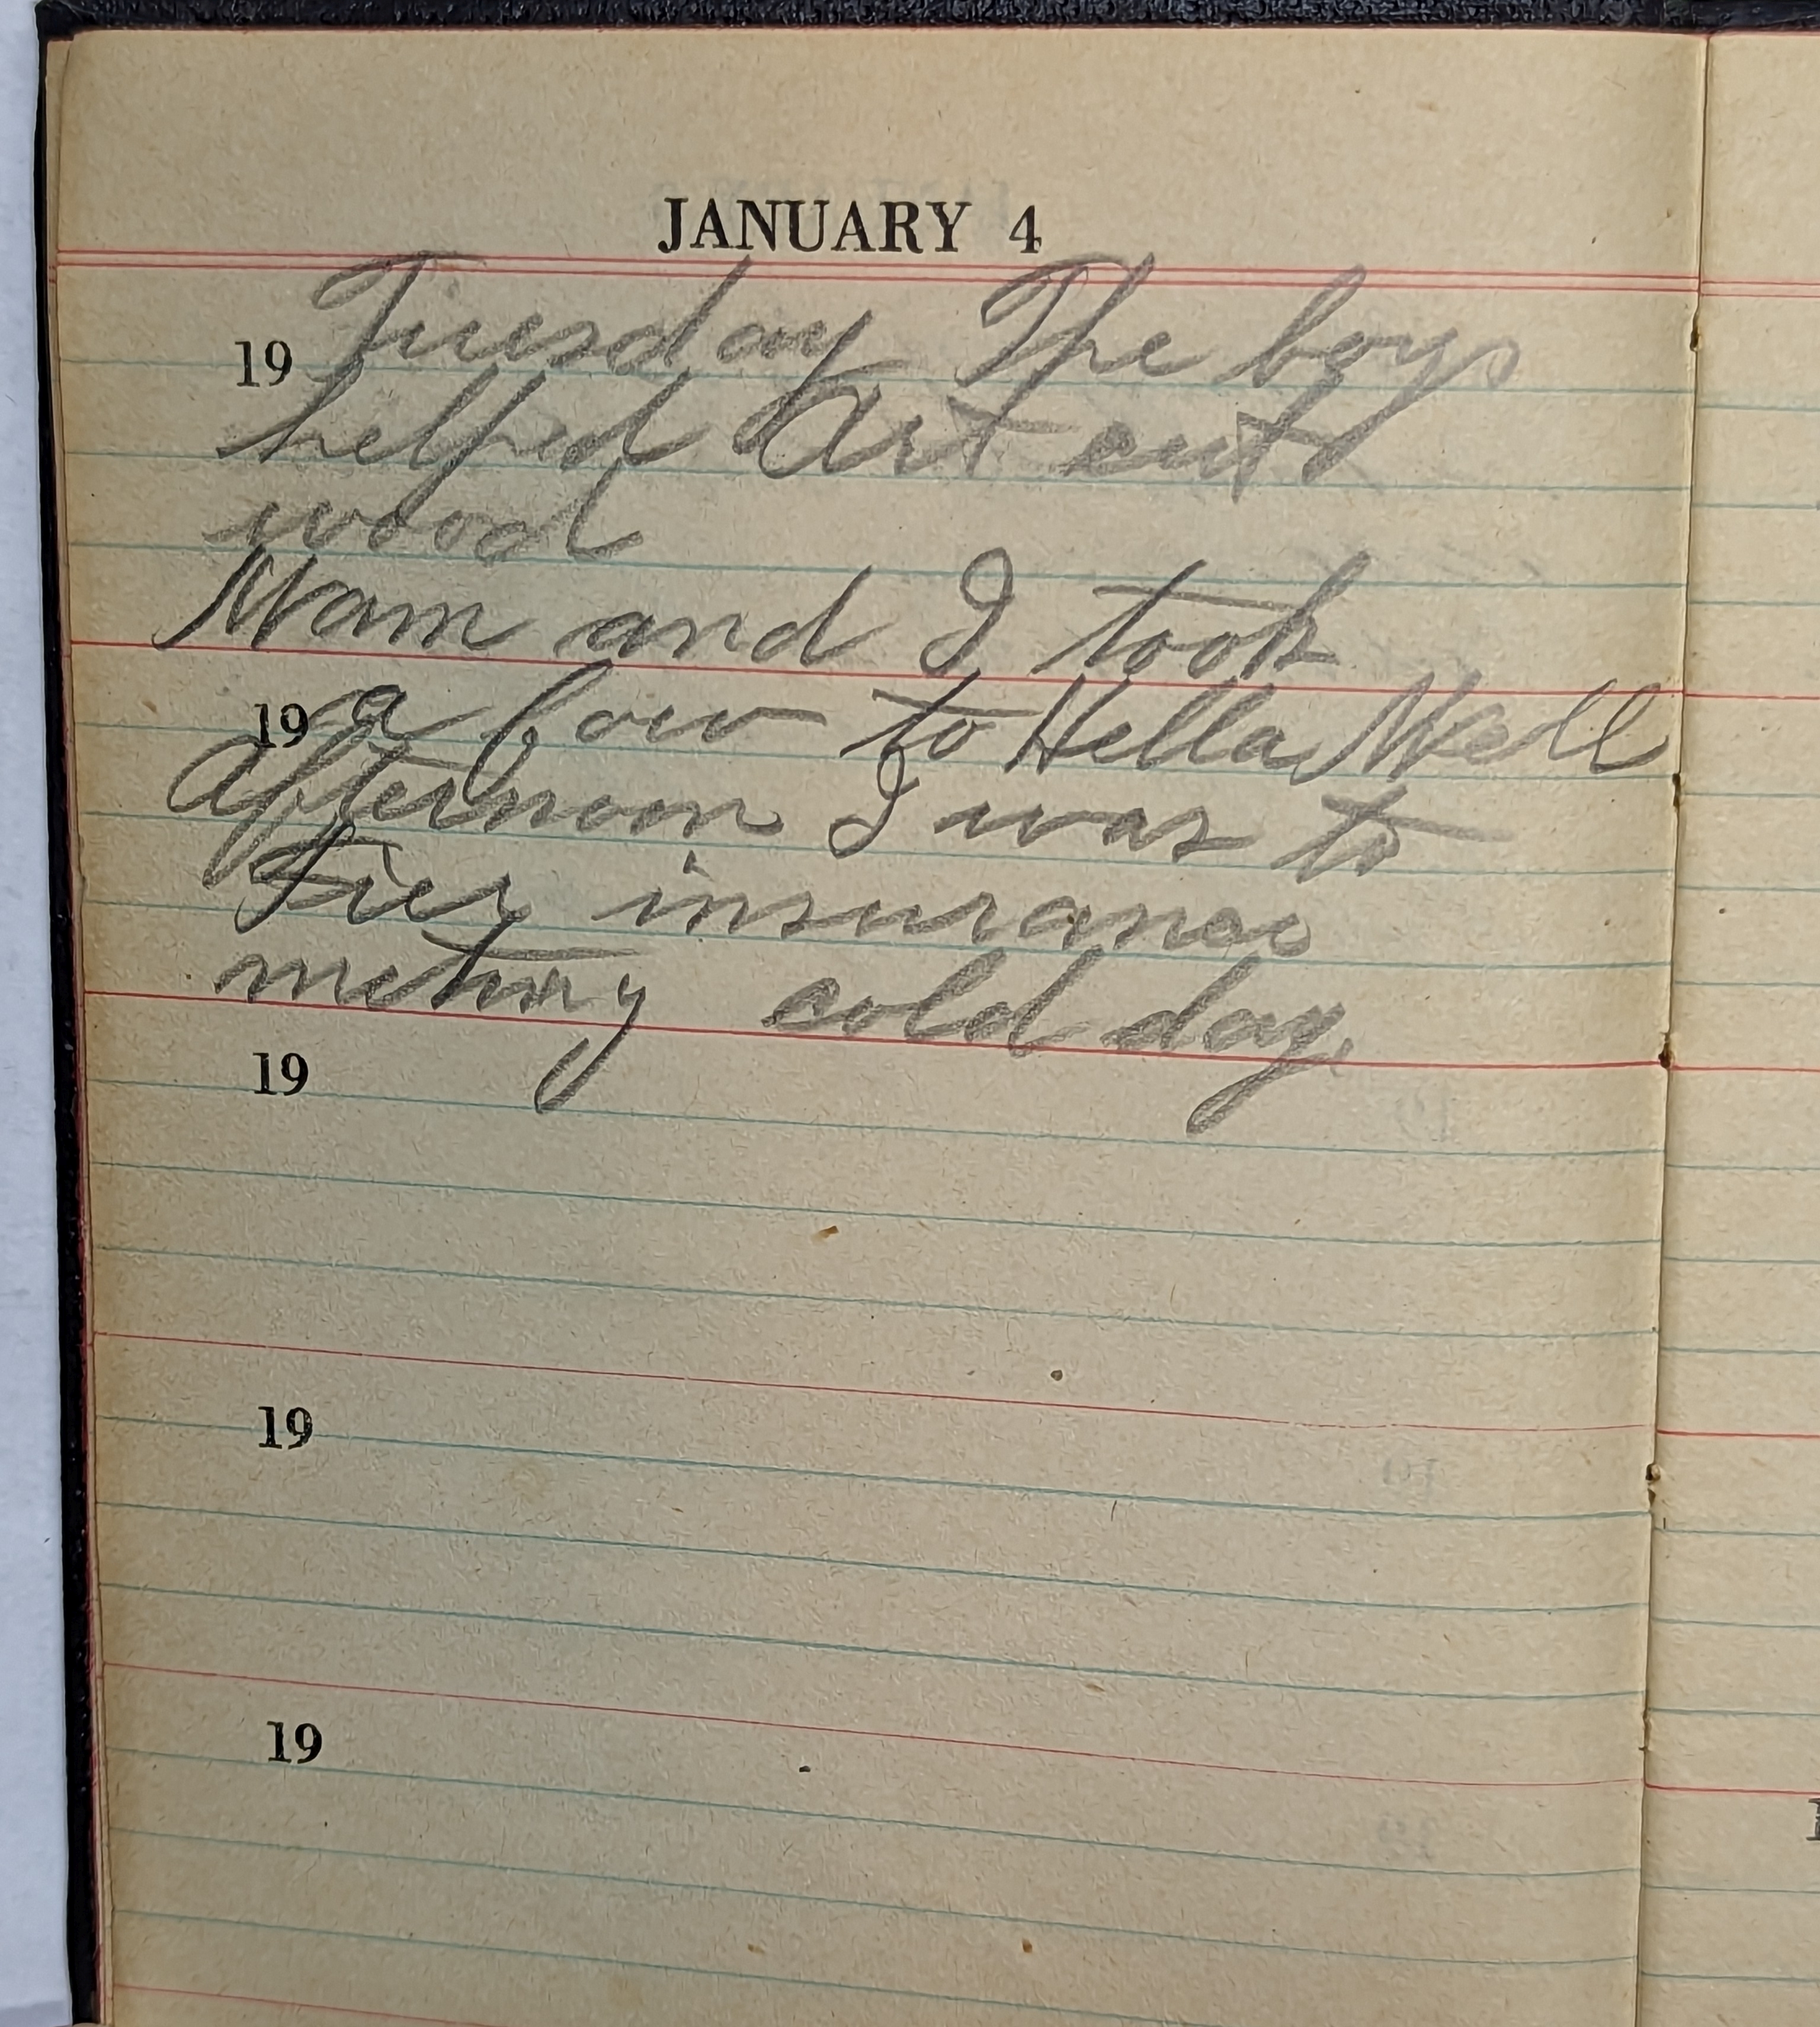 JANUARY 4
19 Tuesday The boys
helped Art cutt
wood
Mam and I took
19 a cow to Hella Well
afternoon I was to
Fier insurance
meting cold day,
19
19
19